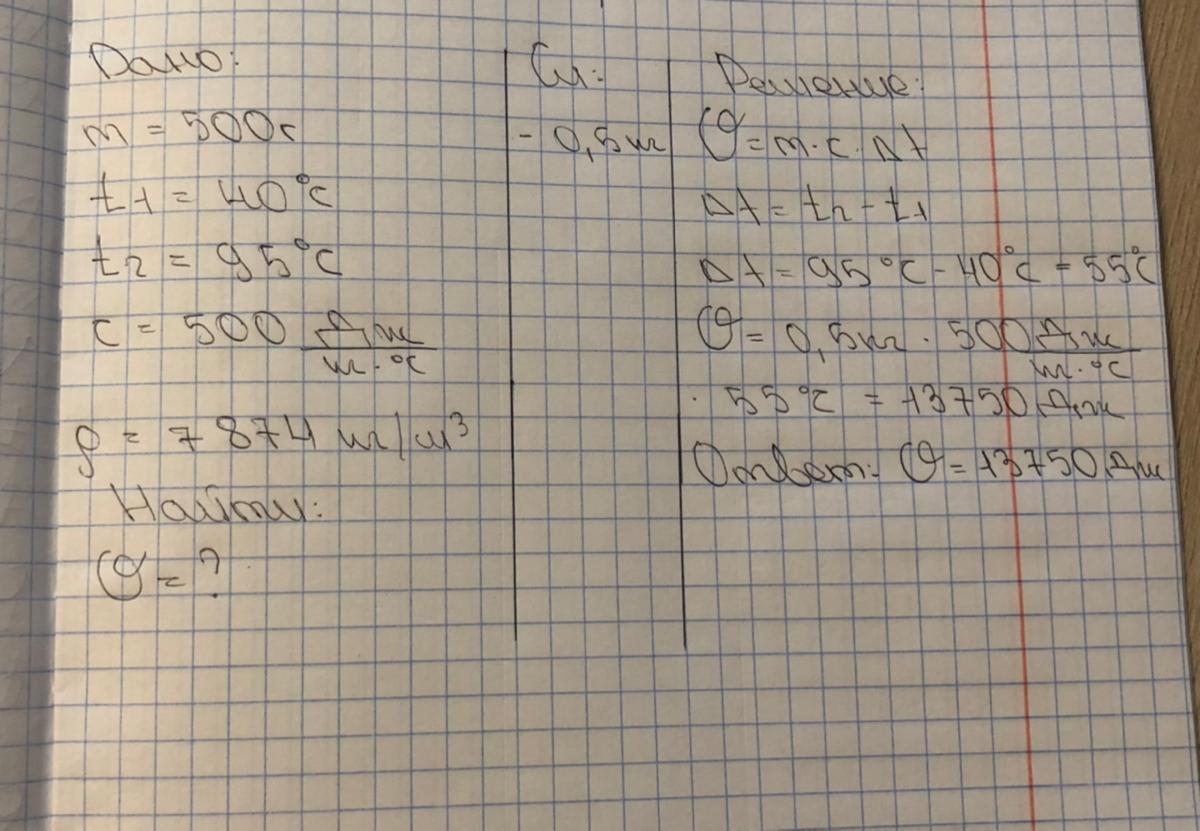 Дано:
m = 500г
t1 = 40°C
t2 = 95°C
c = 500 Дж/кг·°C
ρ = 7874 кг/м³
Найти:
Q = ?
Си:
- 0,5кг
Решение:
Q = m·c·Δt
Δt = t2 - t1
Δt = 95°C - 40°C = 55°C
Q = 0,5кг · 500 Дж/кг·°C
· 55°C = 13750 Дж
Ответ: Q = 13750 Дж